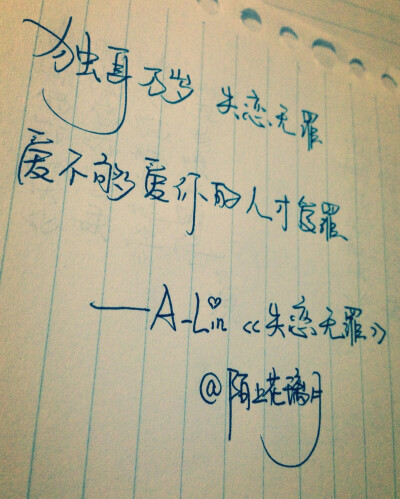 独身万岁 失恋无罪
爱不够爱你的人才受罪
——A-Lin《失恋无罪》
@陌上花璃月